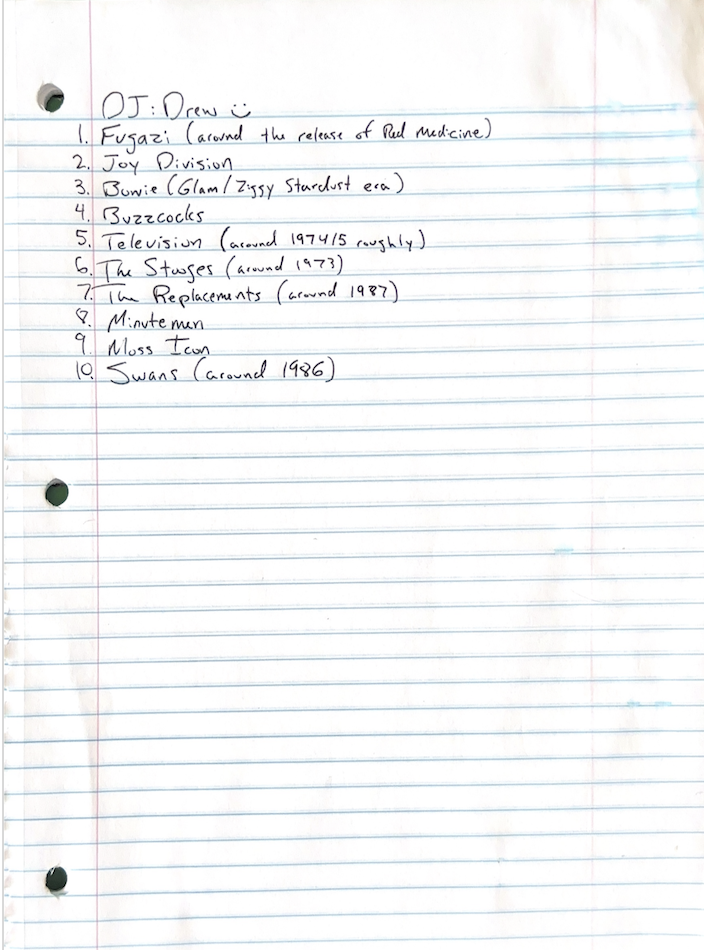 DJ: Drew
1. Fugazi (around the release of Red Medicine)
2. Joy Division
3. Bowie (Glam/Ziggy Stardust era)
4. Buzzcocks
5. Television (around 1974/5 roughly)
6. The Stooges (around 1973)
7. The Replacements (around 1987)
8. Minutemen
9. Moss Icon
10. Swans (around 1986)